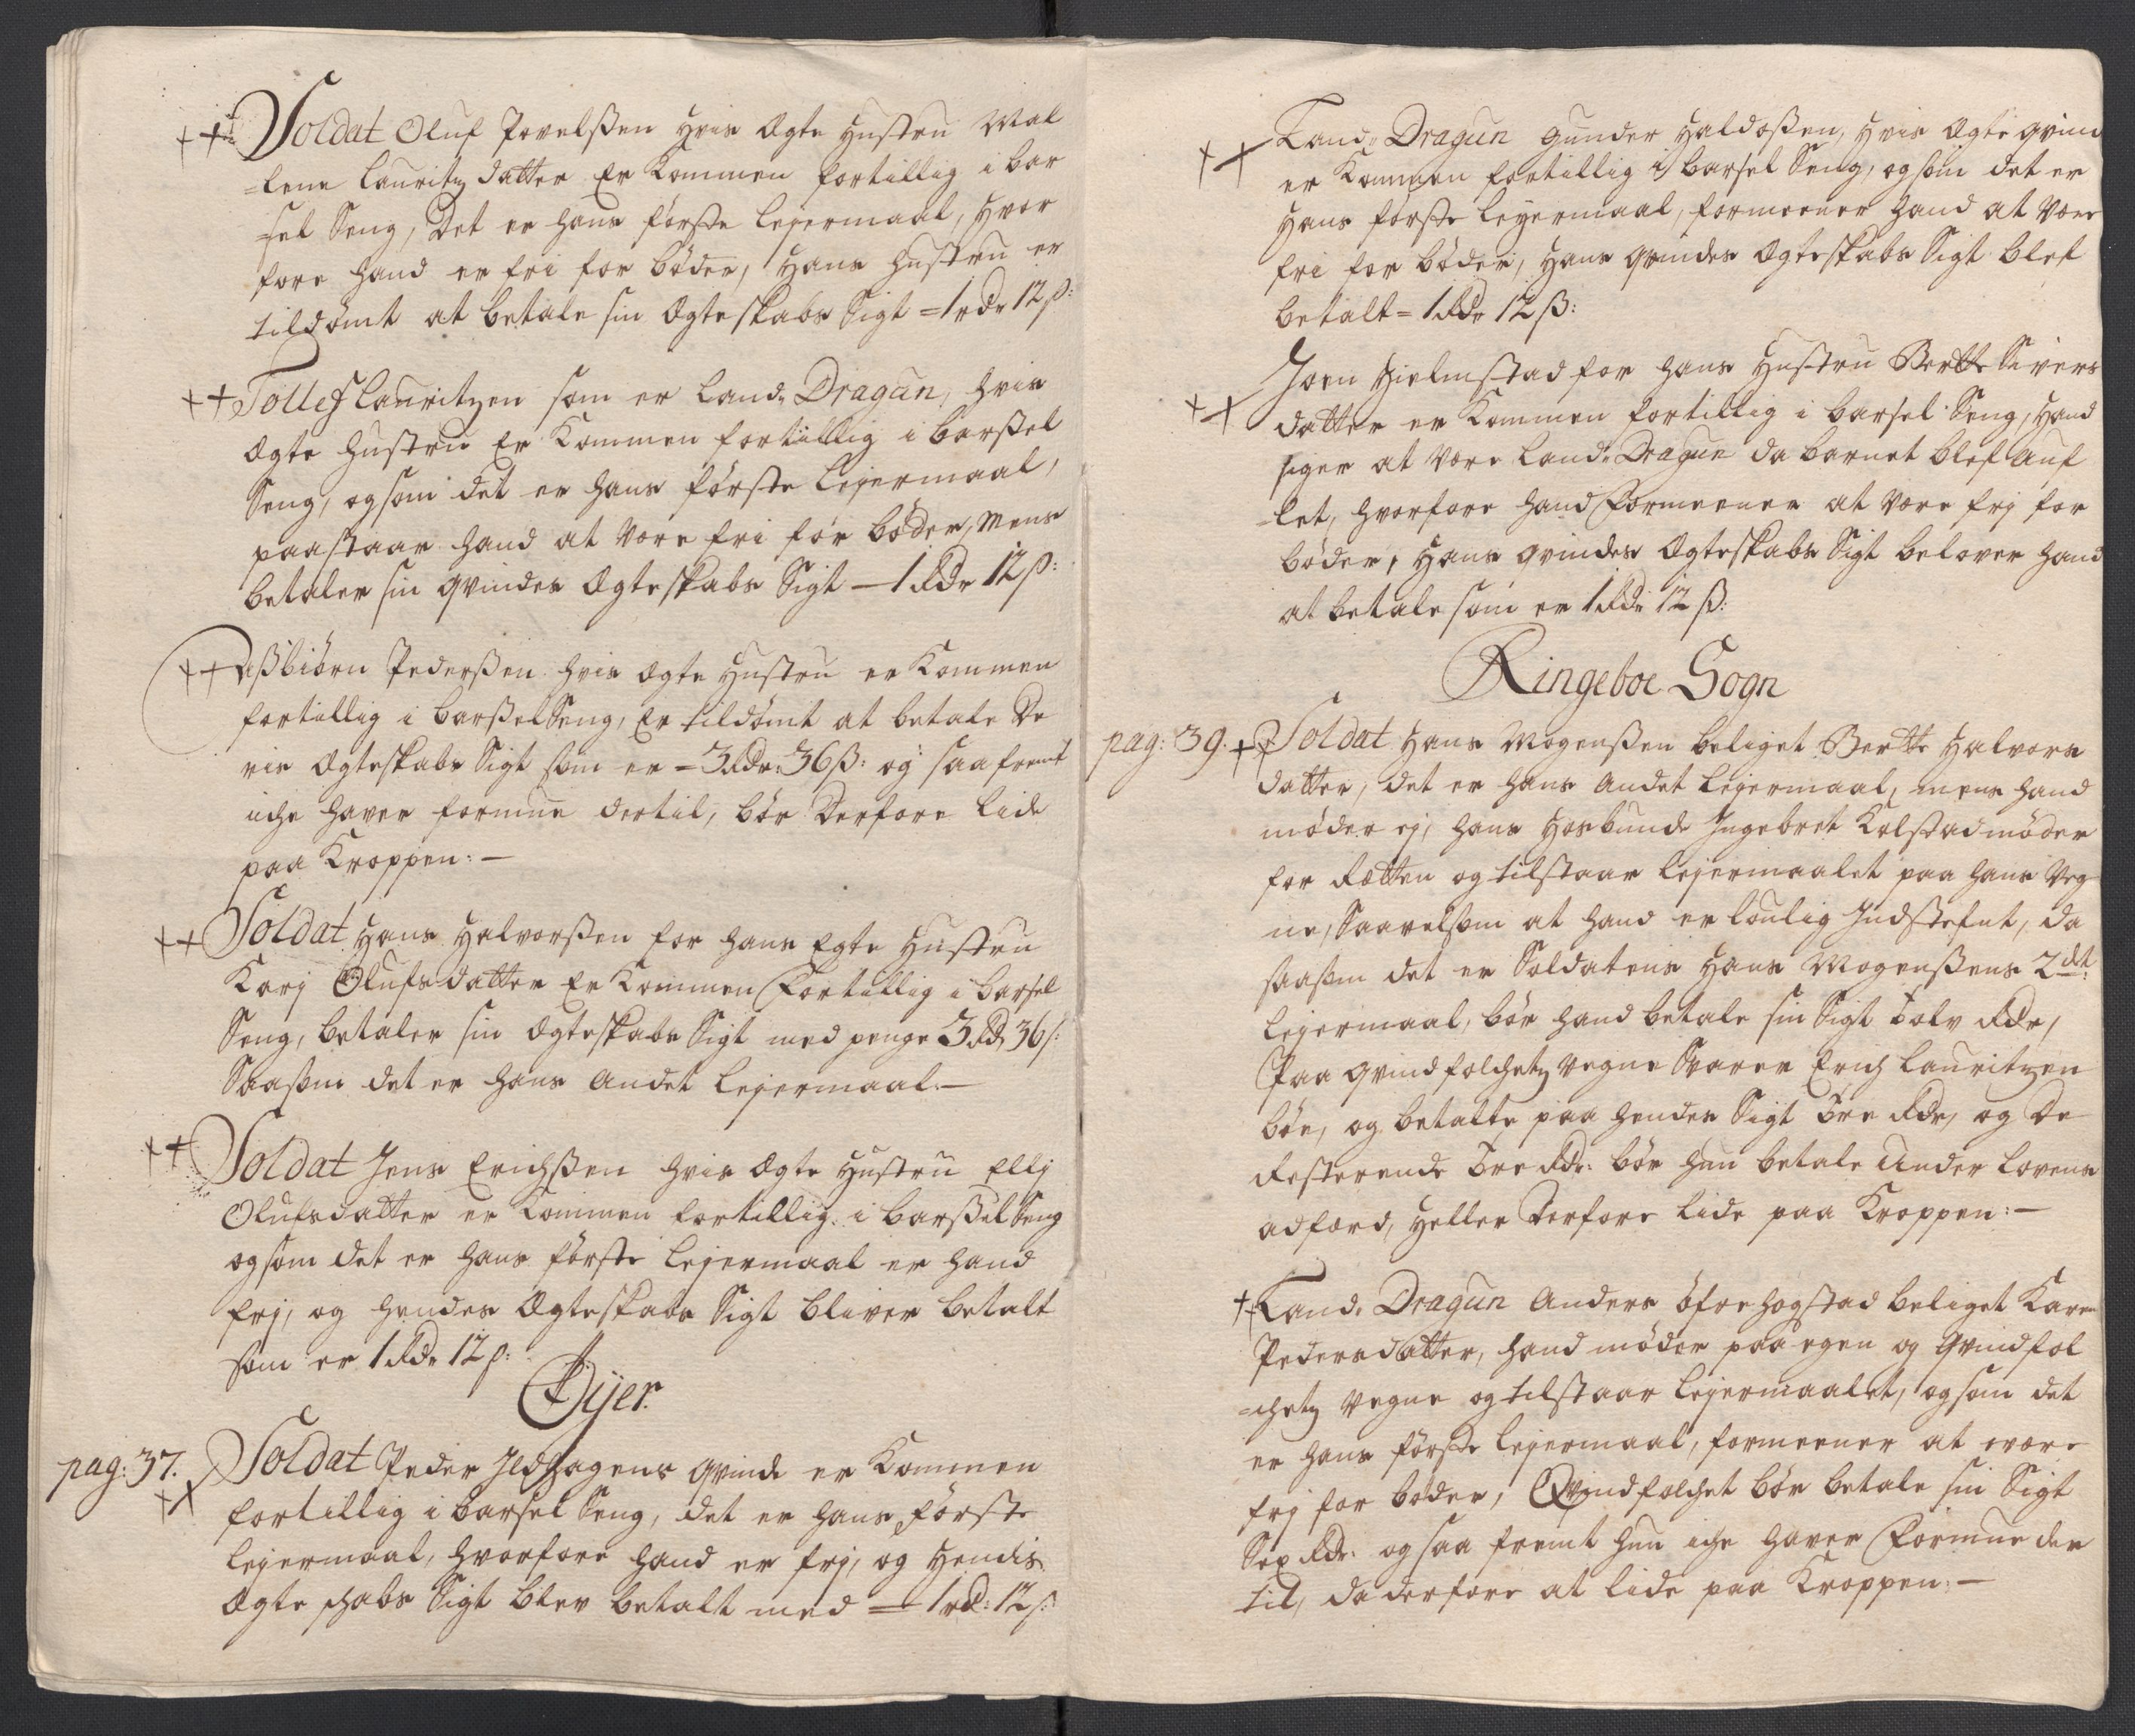 Soldat Oluf Povelßen hvis Ægte Hustru Mal
=lene Lauritz datter Er Kommen fortillig i bar
=sel Seng, Det er hans förste Lejermaal, hvor
fore hand er fri for böder, hans Hustru er
tildömt at betale sin Ægteskabs Sigt = 1 rdr 12 ß:
Tollef Lauritzen som er Land Dragun, hvis
Ægte Hustru Er Kommen fortillig i barßel
Seng, og som det er hans förste Lejermaal,
paastaar hand at være fri for böder, Mens
betaler sin qvindes Ægteskabs Sigt — 1 Rdr 12 ß:
Aßbiörn Pederßen hvis Ægte Hustru er Kommen
fortillig i barßelSeng, Er tildömt at betale De
ris Ægteskabs Sigt som er = 3 Rdr: 36 ß: og saafremt
iche haver formue dertil, bör Derfore lide
paa Kroppen: —
Soldat Hans Halvorßen for hans Egte Hustru
Karj Olufsdatter Er Kommen Fortillig i barsel
Seng, betaler sin Ægteskabs Sigt med penge 3 Rd 36 ß:
Saasom det er hans Andet Lejermaal. —
Soldat Jens Erichßen hvis Ægte Hustru Ellj
Olufsdatter er Kommen fortillig i barßelSeng
og som det er hans förste Lejermaal er hand
frj, og hendes Ægteskabs Sigt bliver betalt
som er 1 Rdr 12 ß:
Öijer.
pag: 37. Soldat Peder Jldhagens qvinde er Kommen
fortillig i barsel Seng, det er hans förste
Lejermaal, hvorfore hand er frj, og hendis
Ægteschabs Sigt blev betalt med = 1 rd: 12 ß:
Land Dragun Gunder Haldoßen, hvis Ægte qvin
er Kommen fortillig i barsel Seng, og som det er
hans förste Leyermaal, formeener hand at være
fri for böder, hans qvindes Ægteskabs Sigt blef
betalt = 1 Rdr 12 ß:
Joen Hielmstad for hans Hustru Berthe Sivers
datter er Kommen fortillig i barsel Seng, hand
siger at være Land Dragun da barnet blef Auf
=let, hvorfore hand Formeener at være frj for
böder, hans qvindes Ægteskabs Sigt belover hand
at betale som er 1 Rdr 12 ß:
Ringeboe Sogn
pag: 39. Soldat Hans Mogenßen beliget Berthe Halvors
datter, det er hans andet Lejermaal, mens hand
möder ej, hans Hosbunde Ingebret Kolstad möder
for Rætten og tilstaar Lejermaalet paa hans Veg
ne, Saavelsom at hand er lovlig Indstefnt, da
saasom det er Soldatens Hans Mogenßens 2dt:
Lejermaal, bör hand betale sin Sigt Tolv Rdr,
Paa qvindfolchetz vegne Svarer Erich Lauritzen
böe, og betalte paa hendes Sigt Tre Rdr, og De
Resterende Tre Rdr: bör hun betale Under Lovens
adfærd, Heller Derfore lide paa Kroppen: —
Land Dragun Anders öfre hogstad beliget Karen
Pedersdatter, hand möder paa egen og qvindfol
=chetz Vegne og tilstaar Lejermaalet, og som det
er hans förste Lejermaal, formeener at være
frj for böder, Qvindfolchet bör betale sin Sigt
Sex Rdr: og saa fremt hun iche haver Formue der
til, da derfore at lide paa Kroppen: —